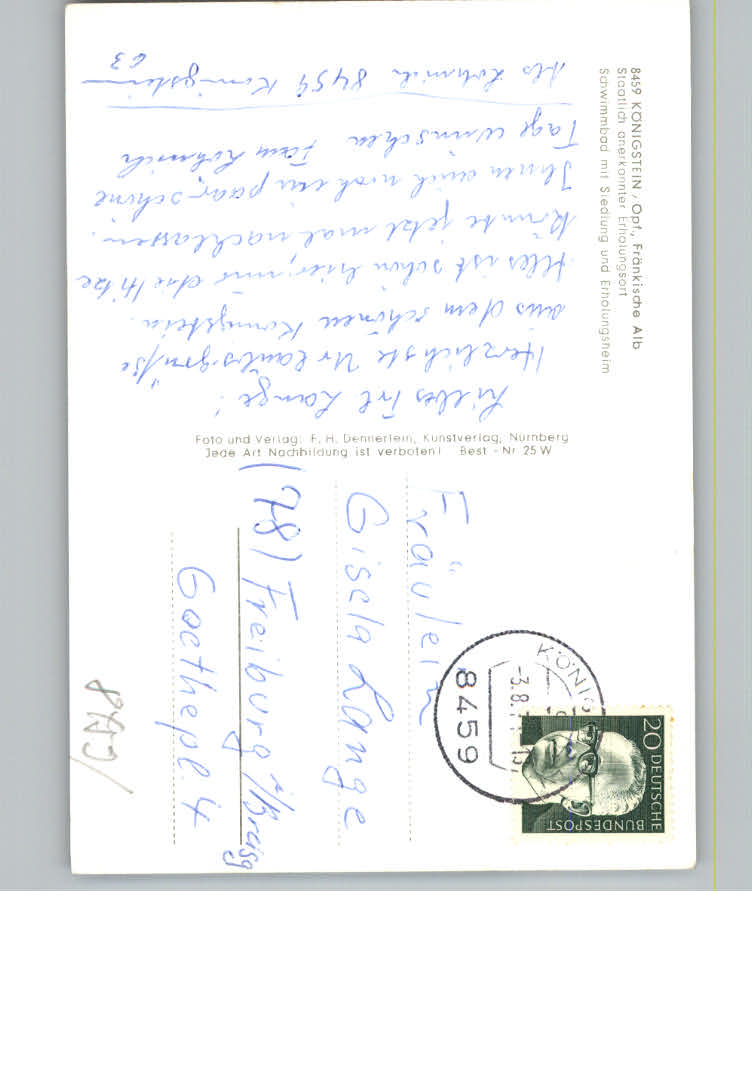 8459 KÖNIGSTEIN, Opf., Fränkische Alb
Staatlich anerkannter Erholungsort
Schwimmbad mit Siedlung und Erholungsheim
Liebes Frl Lange!
Herzlichste Urlaubsgrüße
aus dem schönen Königstein.
Alles ist schön hier, nur die Hitze
könnte jetzt mal nachlassen.
Ihnen auch noch ein paar schöne
Tage wünschen Fam
8459 Königstein
63
Foto und Verlag: F. H. Dennerlein, Kunstverlag, Nürnberg
Jede Art Nachbildung ist verboten! Best - Nr 25 W
Fräulein
Gisela Lange
(78) Freiburg i/Breisg
Goethepl 4
KÖNIG
-3.8.7
8459
20 DEUTSCHE
BUNDESPOST